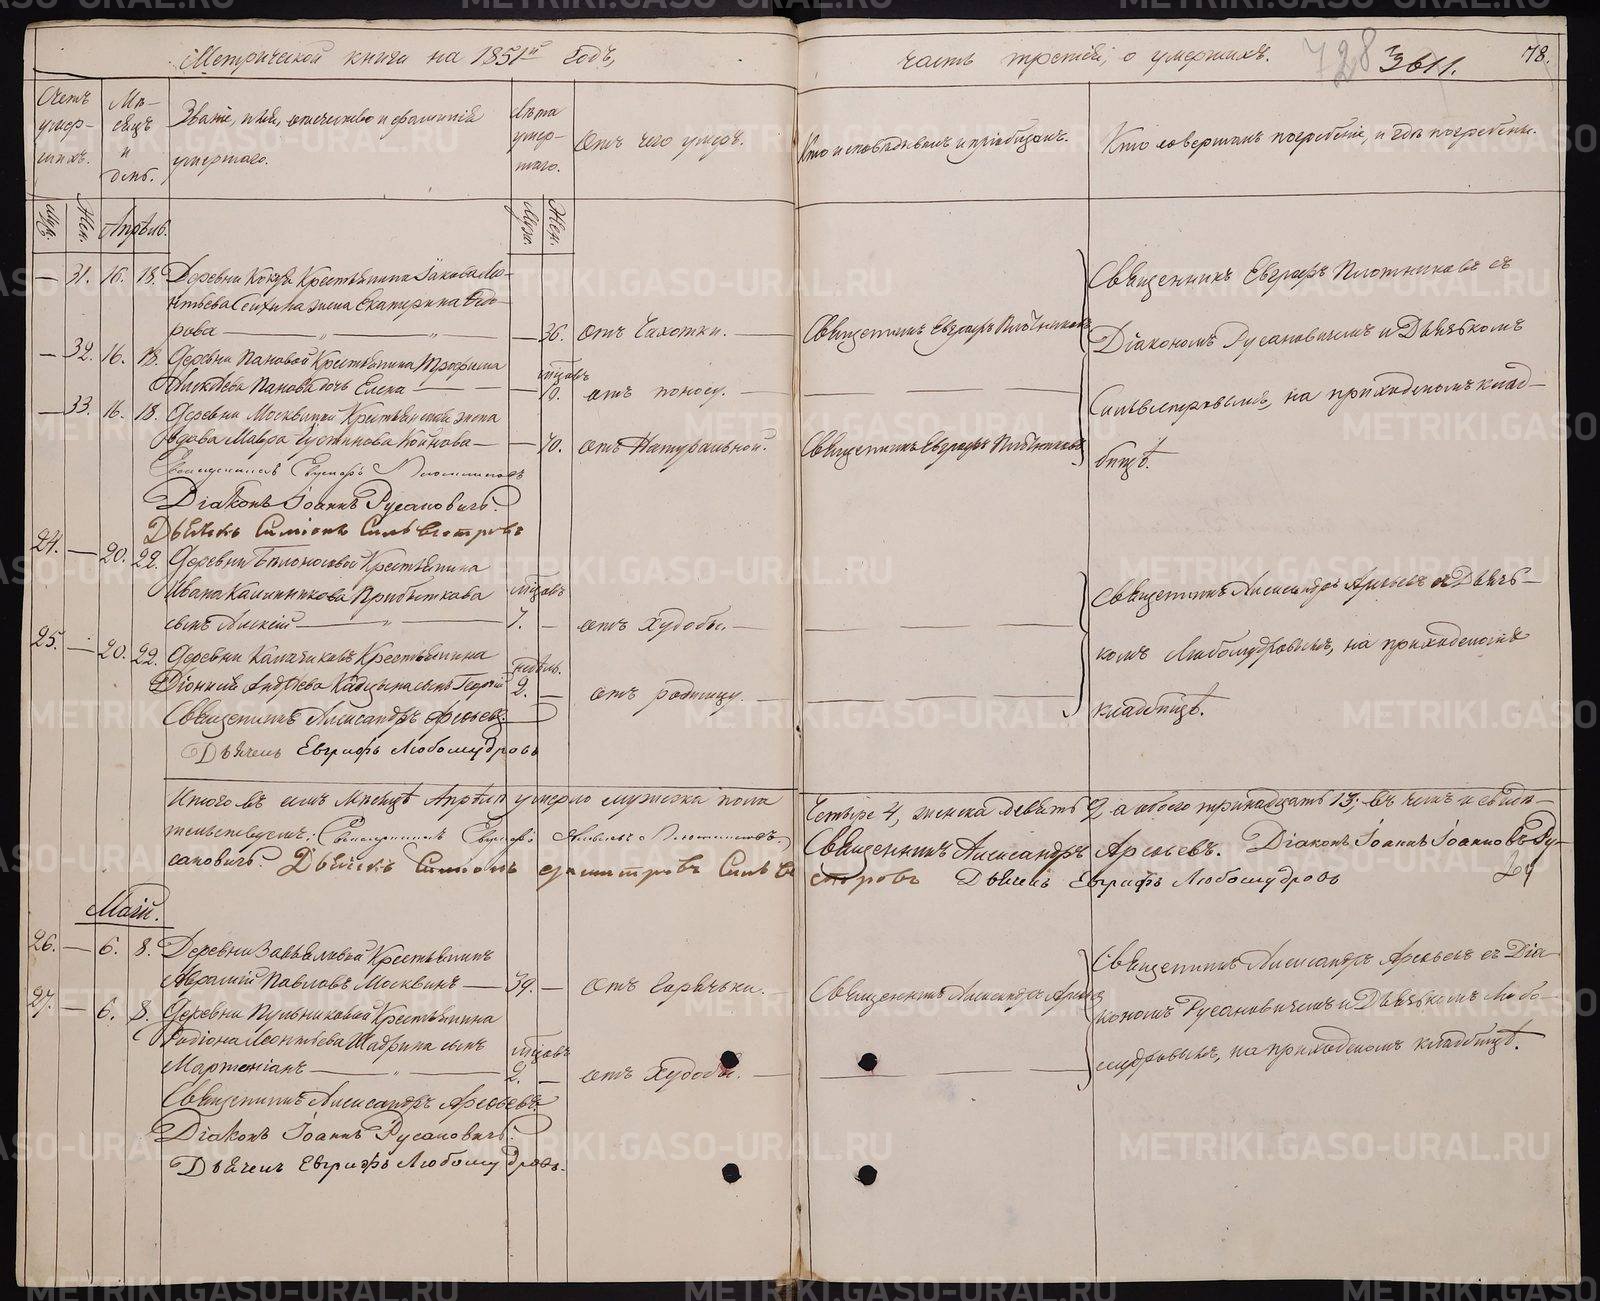 Метрической книги на 1851й годъ,
часть третія, о умершихъ.
728 3611. 78.
Счетъ умер-шихъ.
Мѣ-сяцъ и день.
Званіе, имя, отечество и фамилія умершаго.
Лѣта умер-шаго.
Отъ чего умеръ.
Кто исповѣдывалъ и пріобщалъ.
Кто совершалъ погребеніе, и гдѣ погребены.
Муж. Жен. Апрѣль. Муж. Жен.
— 31. 16. 18. Деревни Крестьянина Іакова Ле-
онтьева жена Екатерина
рова — 36. отъ Чахотки. — Священникъ Евграфъ Плотниковъ
— 32. 16. 18. Деревни Пановой Крестьянина Трофима
Алексѣева Панова дочь Елена — мѣсяцовъ 10. отъ поносу. —
— 33. 16. 18. Деревни Москвиной Крестьянская жена
вдова Мавра Устинова — 70. отъ Натуральной. Священникъ Евграфъ Плотниковъ
Священникъ Евграфъ Плотниковъ съ
Діакономъ Русановичемъ и Дьячкомъ
Сильвестровымъ, на приходскомъ клад-
бищѣ.
Священникъ Евграфъ Плотниковъ
Діаконъ Іоаннъ Русановичъ.
Дьячекъ Симеонъ Сильвестровъ
24. — 20. 22. Деревни Бѣлоносовой Крестьянина
Ивана Калинникова Прибыткова мѣсяцовъ
сынъ Алексій — 7. — отъ Худобы. —
25. — 20. 22. Деревни Крестьянина недѣль.
Діонисія Андреева сынъ Георгій 2. — отъ родимцу. —
Священникъ Александръ Арсеньевъ съ Дьяч-
комъ Любомудровымъ, на приходскомъ
кладбищѣ.
Священникъ Александръ Арсеньевъ
Дьячекъ Евграфъ Любомудровъ
Итого въ семъ Мѣсяцѣ Апрѣлѣ умерло мужеска пола Четыре 4, женска девять 9, а обоего тринадцать 13; въ чемъ и свидѣ-
тельствуемъ: Священникъ Евграфъ Плотниковъ. Священникъ Александръ Арсеньевъ. Діаконъ Іоаннъ Іоанновъ Ру-
сановичъ. Дьячекъ Симеонъ Сильвестровъ Дьячекъ Евграфъ Любомудровъ
Маій.
26. — 6. 8. Деревни Завьяловой Крестьянинъ
Аврамій Павловъ Москвинъ — 39. — отъ Горячьки. — Священникъ Александръ Арсеньевъ
27. — 6. 8. Деревни Пульниковой Крестьянина
Родіона Леонтьева Шадрина сынъ мѣсяцовъ
Мартиніанъ — 2. — отъ Худобы. —
Священникъ Александръ Арсеньевъ съ Діа-
кономъ Русановичемъ и Дьячькомъ Любо-
мудровымъ, на приходскомъ кладбищѣ.
Священникъ Александръ Арсеньевъ.
Діаконъ Іоаннъ Русановичъ.
Дьячекъ Евграфъ Любомудровъ.
METRIKI.GASO-URAL.RU